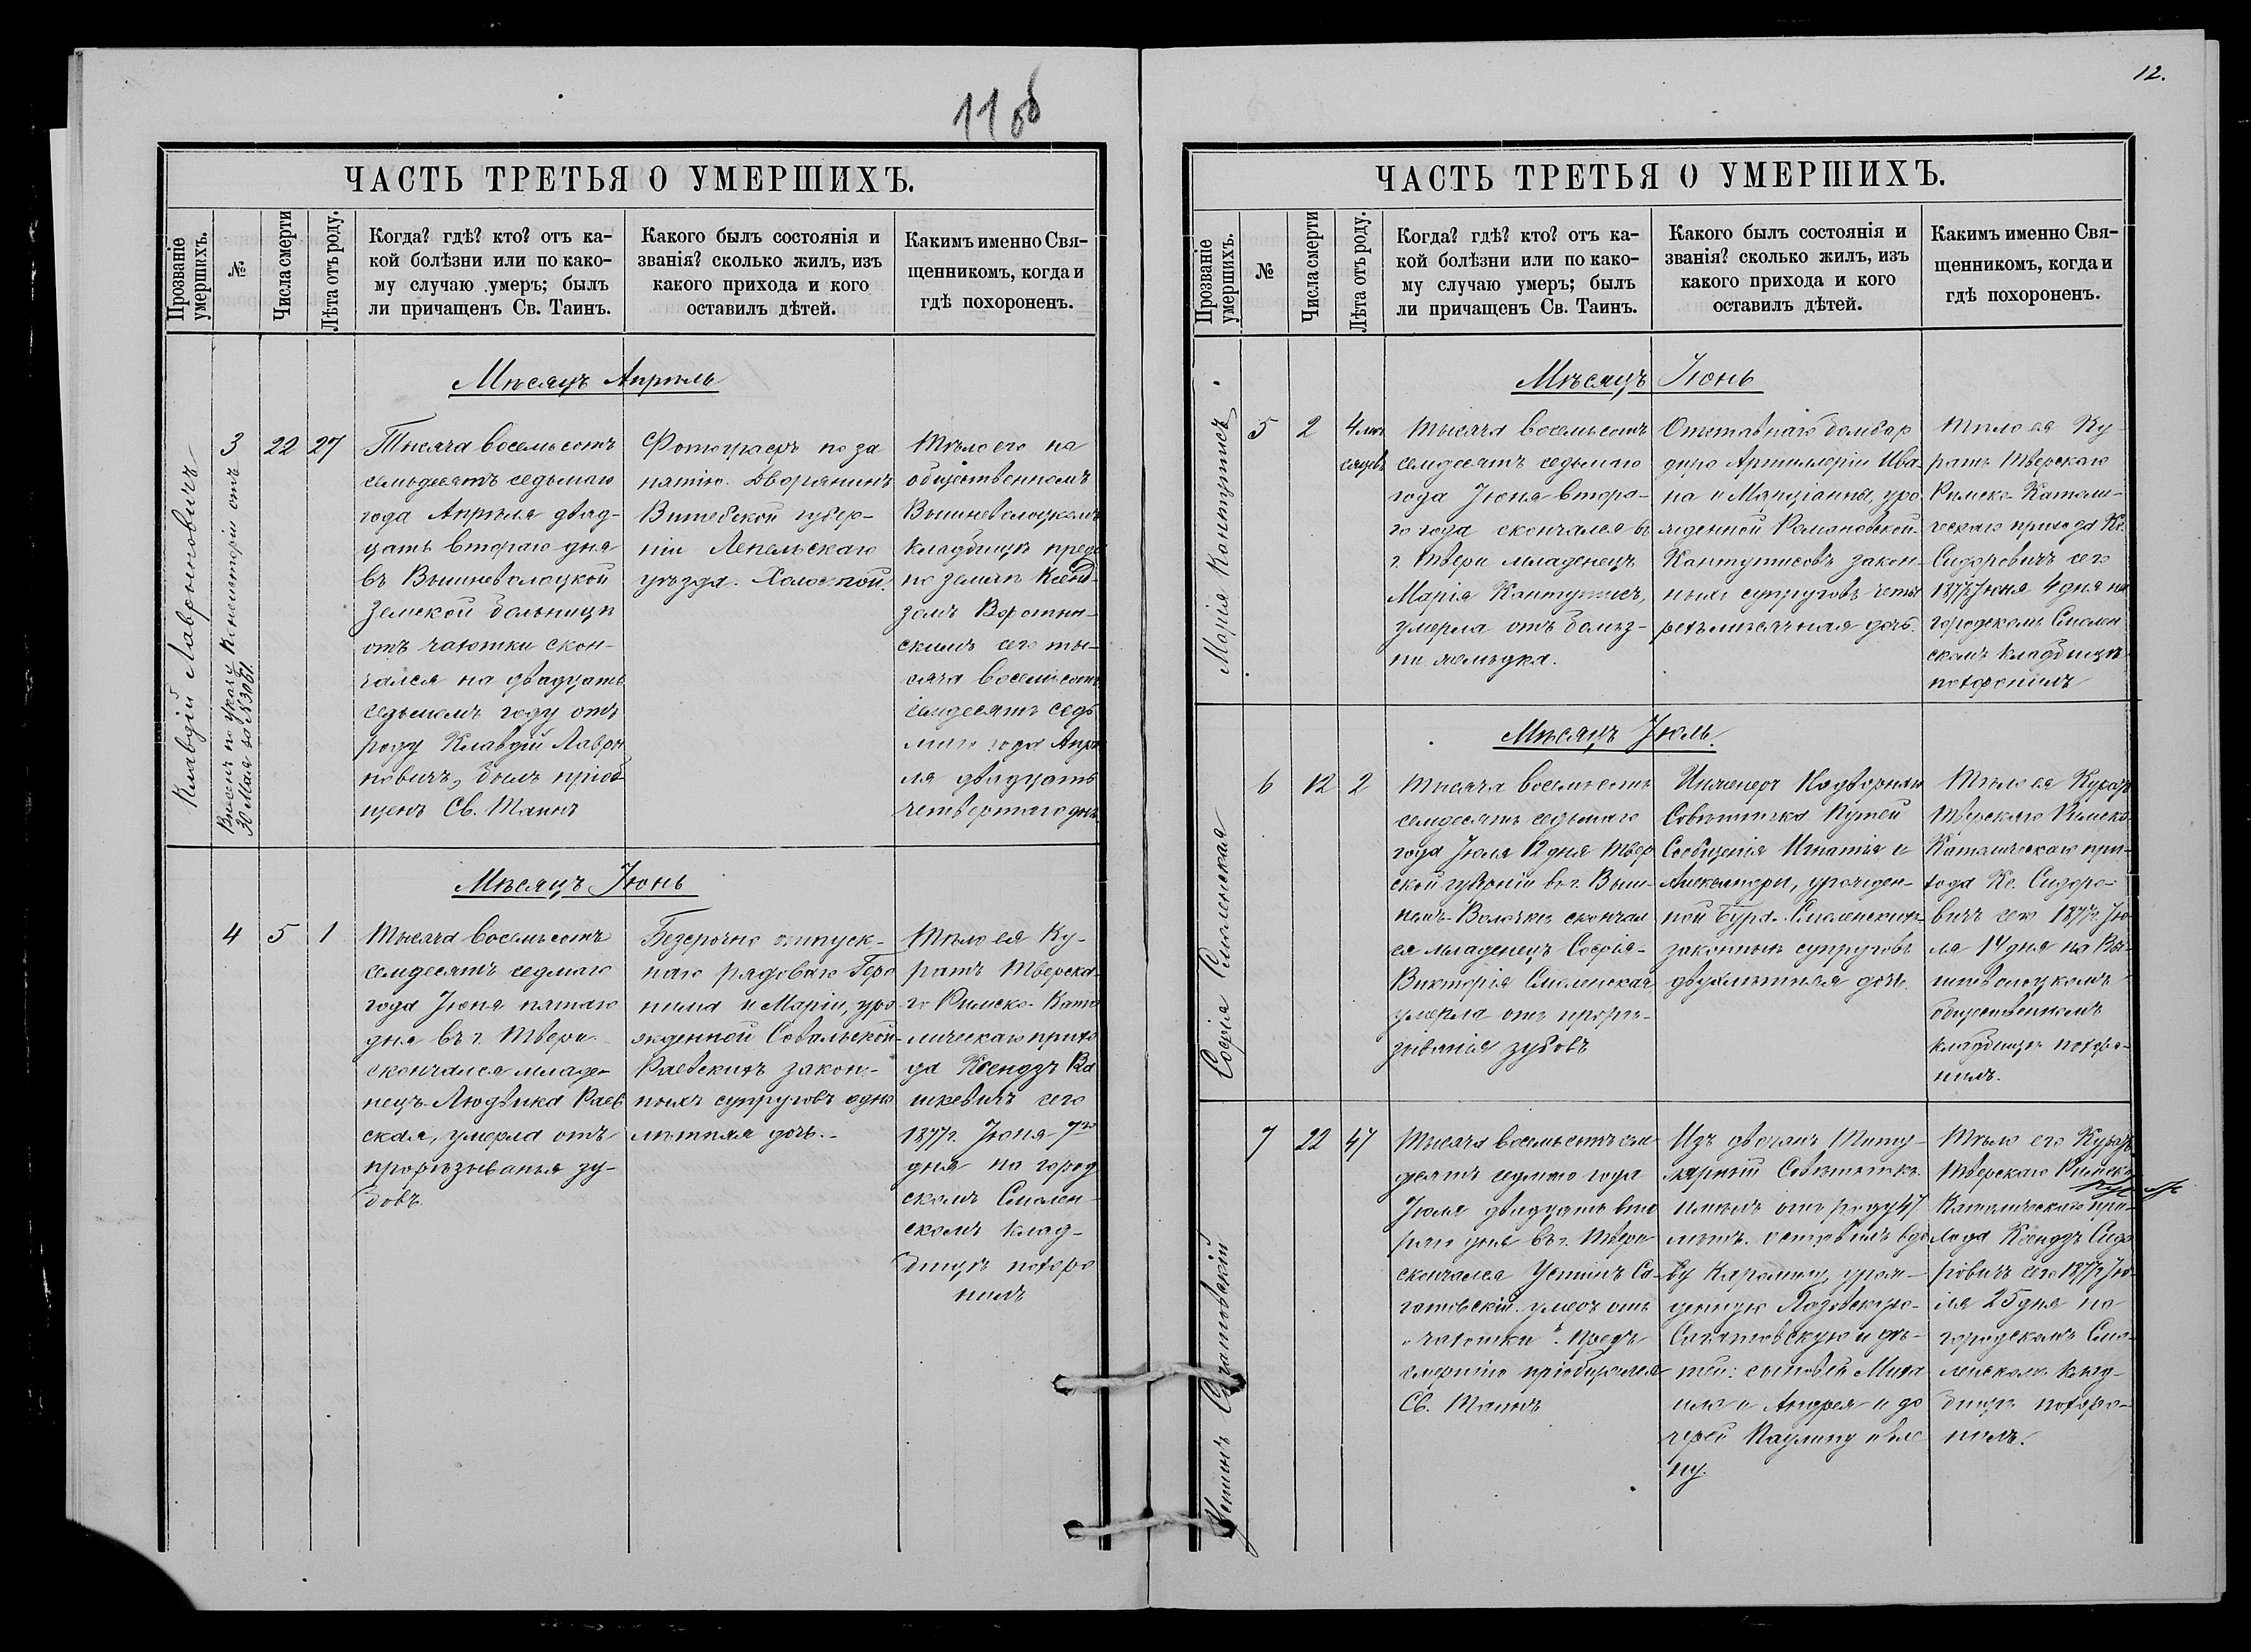 11об
ЧАСТЬ ТРЕТЬЯ О УМЕРШИХЪ.
Прозваніе умершихъ.
№
Числа смерти
Лѣта отъ роду.
Когда? гдѣ? кто? отъ ка-
кой болѣзни или по како-
му случаю умеръ; былъ
ли причащенъ Св. Таинъ.
Какого былъ состоянія и
званія? сколько жилъ, изъ
какого прихода и кого
оставилъ дѣтей.
Какимъ именно Свя-
щенникомъ, когда и
гдѣ похороненъ.
Мѣсяцъ Апрѣль
Клавдій Лавриновичъ
Внесенъ по Указу Консисторіи отъ
30 Мая за №3061
3
22
27
Тысяча восемьсотъ
семьдесятъ седьмаго
года Апрѣля двад-
цать втораго дня
въ Вышневолоцкой
Земской больницѣ
отъ чахотки скон-
чался на двадцать
седьмомъ году отъ
роду Клавдій Лаври
новичъ, былъ пріоб-
щенъ Св. Таинъ
Фотографъ по за
нятію. Дворянинъ
Витебской губер-
ніи Лепельскаго
уѣзда. Холостой.
Тѣло его на
общественномъ
Вышневолоцкомъ
кладбищѣ преда
но землѣ Ксенд-
зомъ
скимъ сего ты-
сяча восемьсотъ
семдесятъ седь
маго года Апрѣ
ля двадцать
четвертаго дня
Мѣсяцъ Іюнь
4
5
1
Тысяча восемьсотъ
семдесятъ седмаго
года Іюня пятаго
дня въ г. Твери
скончался младе-
нецъ Людвика Раев
ская, умерла отъ
прорѣзыванья зу-
бовъ.
Безсрочно отпуск-
наго рядоваго Геро
нима и Маріи, уро
жденной Совальской-
Раевскихъ закон-
ныхъ супруговъ одно
лѣтняя дочь.
Тѣло ея Ку-
ратъ Тверска-
го Римско-Като
лическаго прихо
да Ксендзъ Ва
шкевичъ сего
1877г. Іюня 7го
дня на город
скомъ Смолен-
скомъ клад-
бищѣ похоро
нилъ
12.
ЧАСТЬ ТРЕТЬЯ О УМЕРШИХЪ.
Прозваніе умершихъ.
№
Числа смерти
Лѣта отъ роду.
Когда? гдѣ? кто? отъ ка-
кой болѣзни или по како-
му случаю умеръ; былъ
ли причащенъ Св. Таинъ.
Какого былъ состоянія и
званія? сколько жилъ, изъ
какого прихода и кого
оставилъ дѣтей.
Какимъ именно Свя-
щенникомъ, когда и
гдѣ похороненъ.
Мѣсяцъ Іюнь
Марія Контутисъ
5
2
4 мѣ
сяцевъ
Тысяча восемьсотъ
семдесятъ седьмаго
года Іюня второ-
го года скончался въ
г. Твери младенецъ
Марія Контутисъ,
умерла отъ болѣз-
ни желудка.
Отставнаго бомбар
дира Артиллеріи Ива-
на и Марціанны, уро
жденной Романовской-
Контутисовъ закон-
ныхъ супруговъ четы
рехмѣсячная дочь.
Тѣло ея Ку-
ратъ Тверскаго
Римско-Католи-
ческаго прихода Кс.
Сидоровичъ сего
1877г Іюня 4 дня на
городскомъ Смолен
скомъ кладбищѣ
похоронилъ
Мѣсяцъ Іюль.
Софія Смоленская
6
12
2
Тысяча восемьсотъ
семдесятъ седьмаго
года Іюля 12 дня Твер
ской губерніи въ г. Выш-
немъ-Волочкѣ скончал
ся младенецъ Софія-
Викторія Смоленская
умерла отъ прорѣ-
зыванія зубовъ
Инженера Надворнаго
Совѣтника Путей
Сообщенія Игнатія и
Александры, урожден-
ной Смоленскихъ
законныхъ супруговъ
двухлѣтняя дочь.
Тѣло ея Куратъ
Тверскаго Римско
Католическаго при-
хода Кс. Сидоро-
вичъ сего 1877г. Ію-
ля 14 дня на Вы-
шневолоцкомъ
общественномъ
кладбищѣ похоро-
нилъ.
Устинъ Сагатовскій
7
22
47
Тысяча восемьсотъ сем
десятъ седмаго года
Іюля двадцать вто
раго дня въ г. Твери
скончался Устинъ Са-
гатовскій умеръ отъ
"чахотки". Предъ
смертію пріобщался
Св. Таинъ
Изъ дворянъ Титу-
лярный Совѣтникъ
имѣлъ отъ роду 47
лѣтъ. оставилъ вдо
ву Каролину, урож-
денную
Сагатовскую и дѣ-
тей: сыновей Миха
ила и Андрея и до
черей Паулину и Еле
ну.
Тѣло его Куратъ
Тверскаго Римско
Католическаго при-
хода Ксендзъ Сидо
ровичъ сего 1877г Ію-
ля 25 дня на
городскомъ Смо-
ленскомъ клад-
бищѣ похоро-
нилъ.